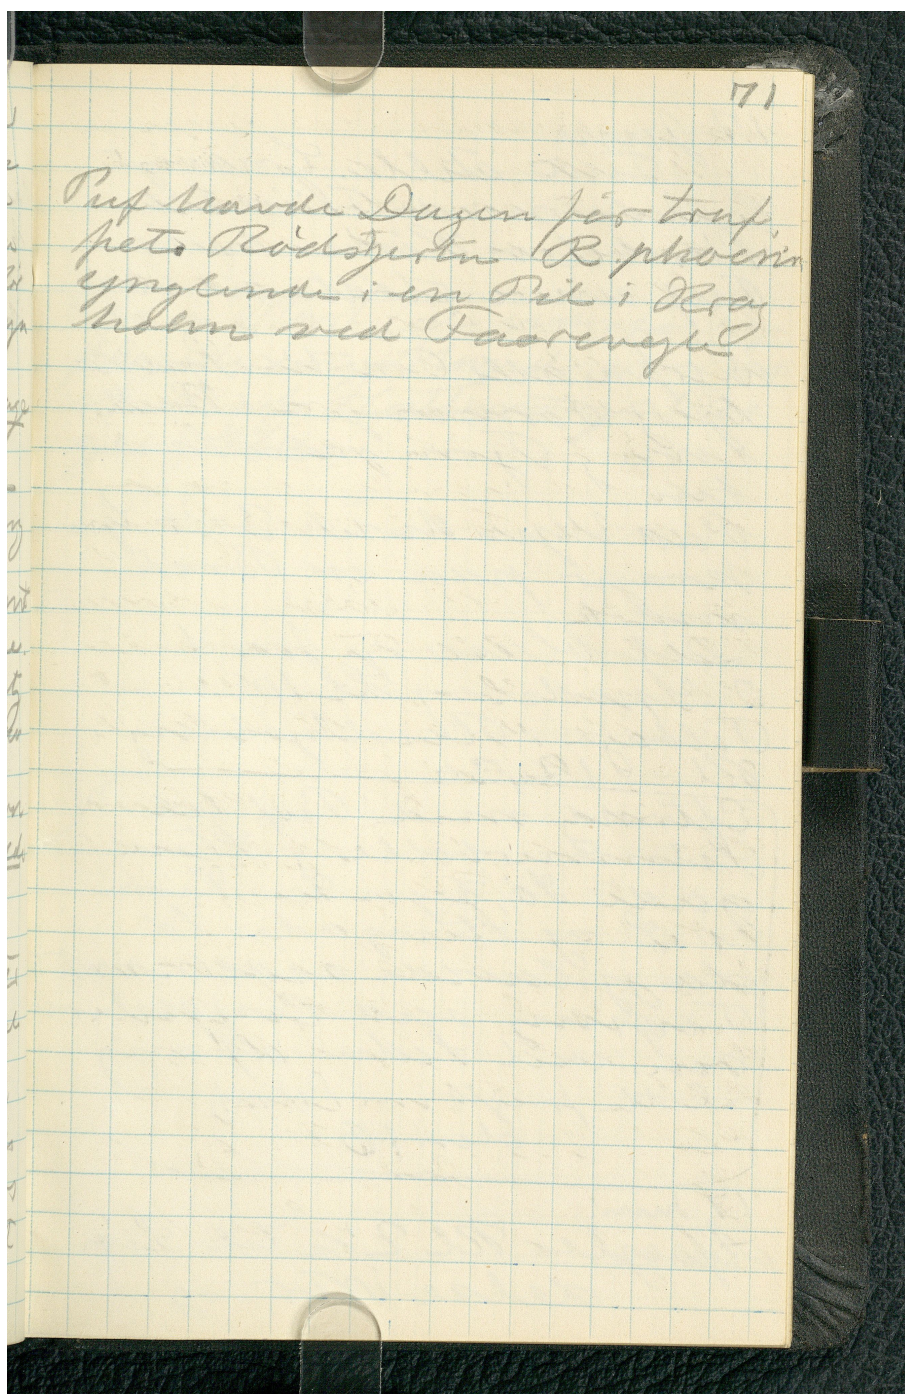 71
Puf havde Dagen før truf
fet. Rødstjerten R. phoenic
ynglende i en Pil i Krag
holm ved Faarevejle